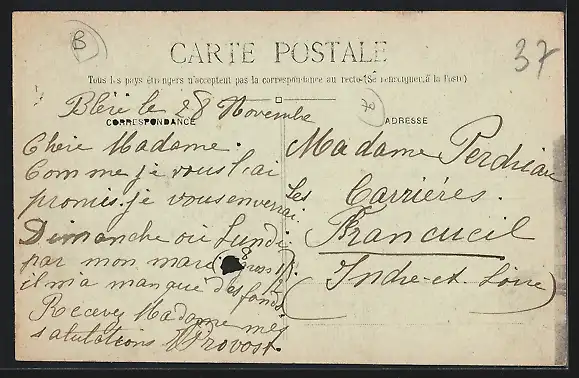 B
37
CARTE POSTALE
Tous les pays étrangers n'acceptent pas la correspondance au recto (Se renseigner à la Poste)
Bléré le 28 Novembre
CORRESPONDANCE
ADRESSE
Chère Madame.
Comme je vous l'ai
promis je vous enverrai
Dimanche ou Lundi
par mon mari
il m'a manqué des fonds.
Recevez Madame mes
salutations Provost.
Madame Perdriau
Les
Carrières.
Francueil
(Indre-et-Loire)